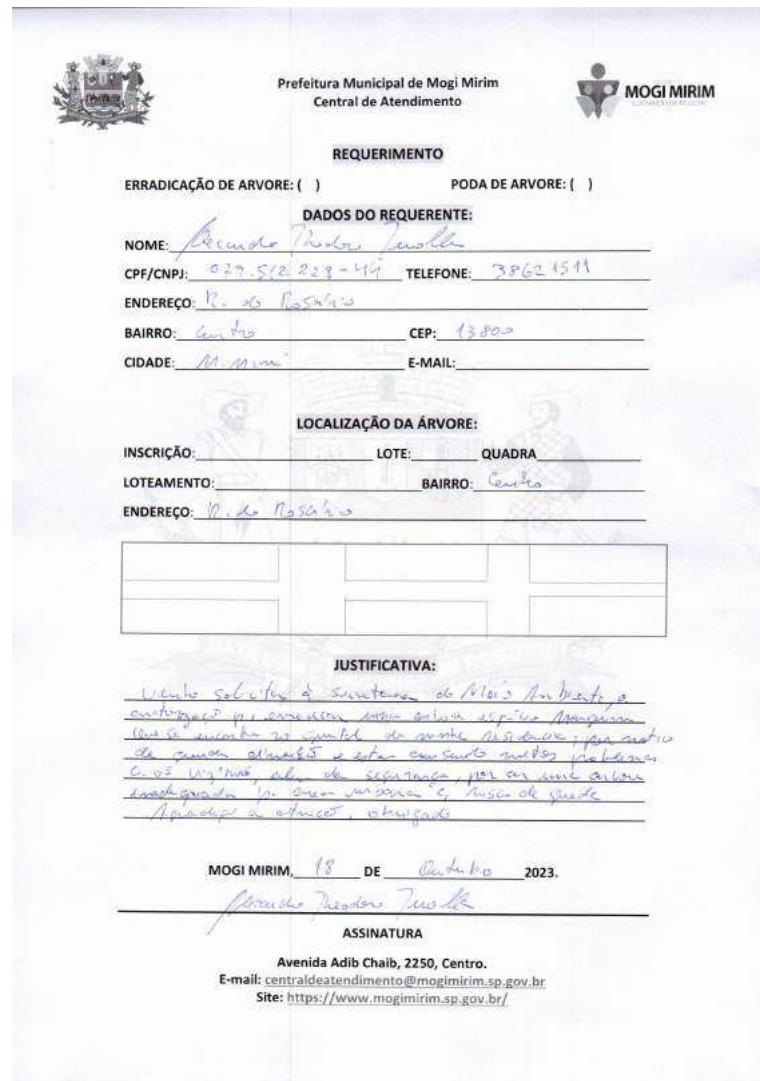 Prefeitura Municipal de Mogi Mirim
Central de Atendimento
MOGI MIRIM
REQUERIMENTO
ERRADICAÇÃO DE ARVORE: ( ) PODA DE ARVORE: ( )
DADOS DO REQUERENTE:
NOME: Theodoro
CPF/CNPJ: 079.512.228-44 TELEFONE: 38621511
ENDEREÇO: R. do Rosário
BAIRRO: Centro CEP: 13800
CIDADE: M. Mirim E-MAIL:
LOCALIZAÇÃO DA ÁRVORE:
INSCRIÇÃO: LOTE: QUADRA
LOTEAMENTO: BAIRRO: Centro
ENDEREÇO: R. do Rosário
JUSTIFICATIVA:
Venho solicitar à secretaria do Meio Ambiente, a
autorização p/ erradicar uma árvore espécie
que se encontra no quintal da minha residência, por motivo
de grande dimensão e estar causando muitos problemas
c/ os vizinhos, além da segurança, por ser uma árvore
inadequada p/ área urbana c/ risco de queda
Agradeço a atenção, obrigado
MOGI MIRIM, 18 DE Outubro 2023.
Theodoro
ASSINATURA
Avenida Adib Chaib, 2250, Centro.
E-mail: centraldeatendimento@mogimirim.sp.gov.br
Site: https://www.mogimirim.sp.gov.br/